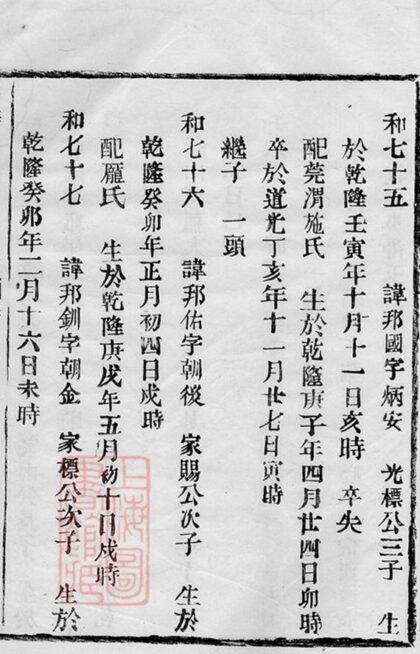 和七十五　諱邦國字炳安　光標公三子　生
於乾隆壬寅年十月十一日亥時　卒失
配莞渭施氏　生於乾隆庚子年四月廿四日卯時
卒於道光丁亥年十一月廿七日寅時
繼子　一頭
和七十六　諱邦佑字朝後　家賜公次子　生於
乾隆癸卯年正月初四日戍時
配龐氏　生於乾隆庚戌年五月初十日戍時
和七十七　諱邦釧字朝金　家標公次子　生於
乾隆癸卯年二月十六日未時
上海圖書館藏